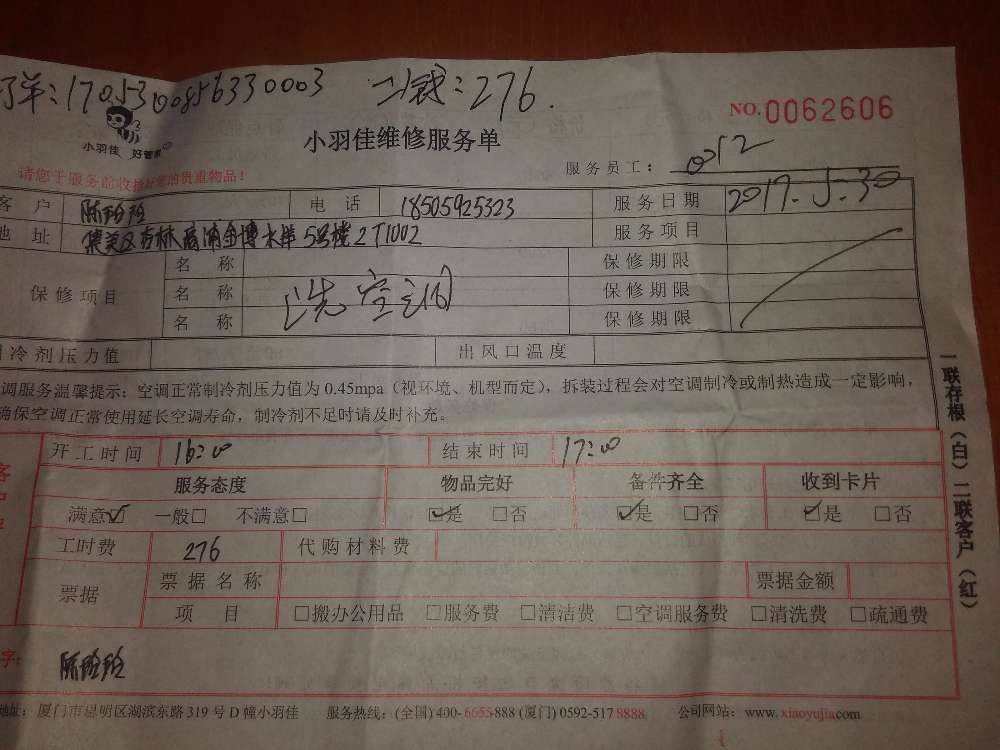 订单：17053008563300003 二维：276.
NO.0062606
小羽佳 好管家
小羽佳维修服务单
服务员工：0212
请您于服务前收拾好您的贵重物品！
客 户 电 话 18505925323 服务日期 2017.5.30
地 址 集美区杏林高浦金博水岸5号楼2T1002 服务项目
保修项目 名 称 保修期限
名 称 洗空调 保修期限
名 称 保修期限
制冷剂压力值 出风口温度
调服务温馨提示：空调正常制冷剂压力值为0.45mpa（视环境、机型而定），拆装过程会对空调制冷或制热造成一定影响，
确保空调正常使用延长空调寿命，制冷剂不足时请及时补充。
开工时间 16:00 结束时间 17:00
服务态度 物品完好 备件齐全 收到卡片
满意☑ 一般□ 不满意□ ☑是 □否 ☑是 □否 ☑是 □否
工时费 276 代购材料费
票据 票据名称 票据金额
项 目 □搬办公用品 □服务费 □清洁费 □空调服务费 □清洗费 □疏通费
字：
地址：厦门市思明区湖滨东路319号D幢小羽佳 服务热线：(全国) 400-6653-888 (厦门) 0592-517 8888 公司网站：www.xiaoyujia.com
一联存根（白）二联客户（红）